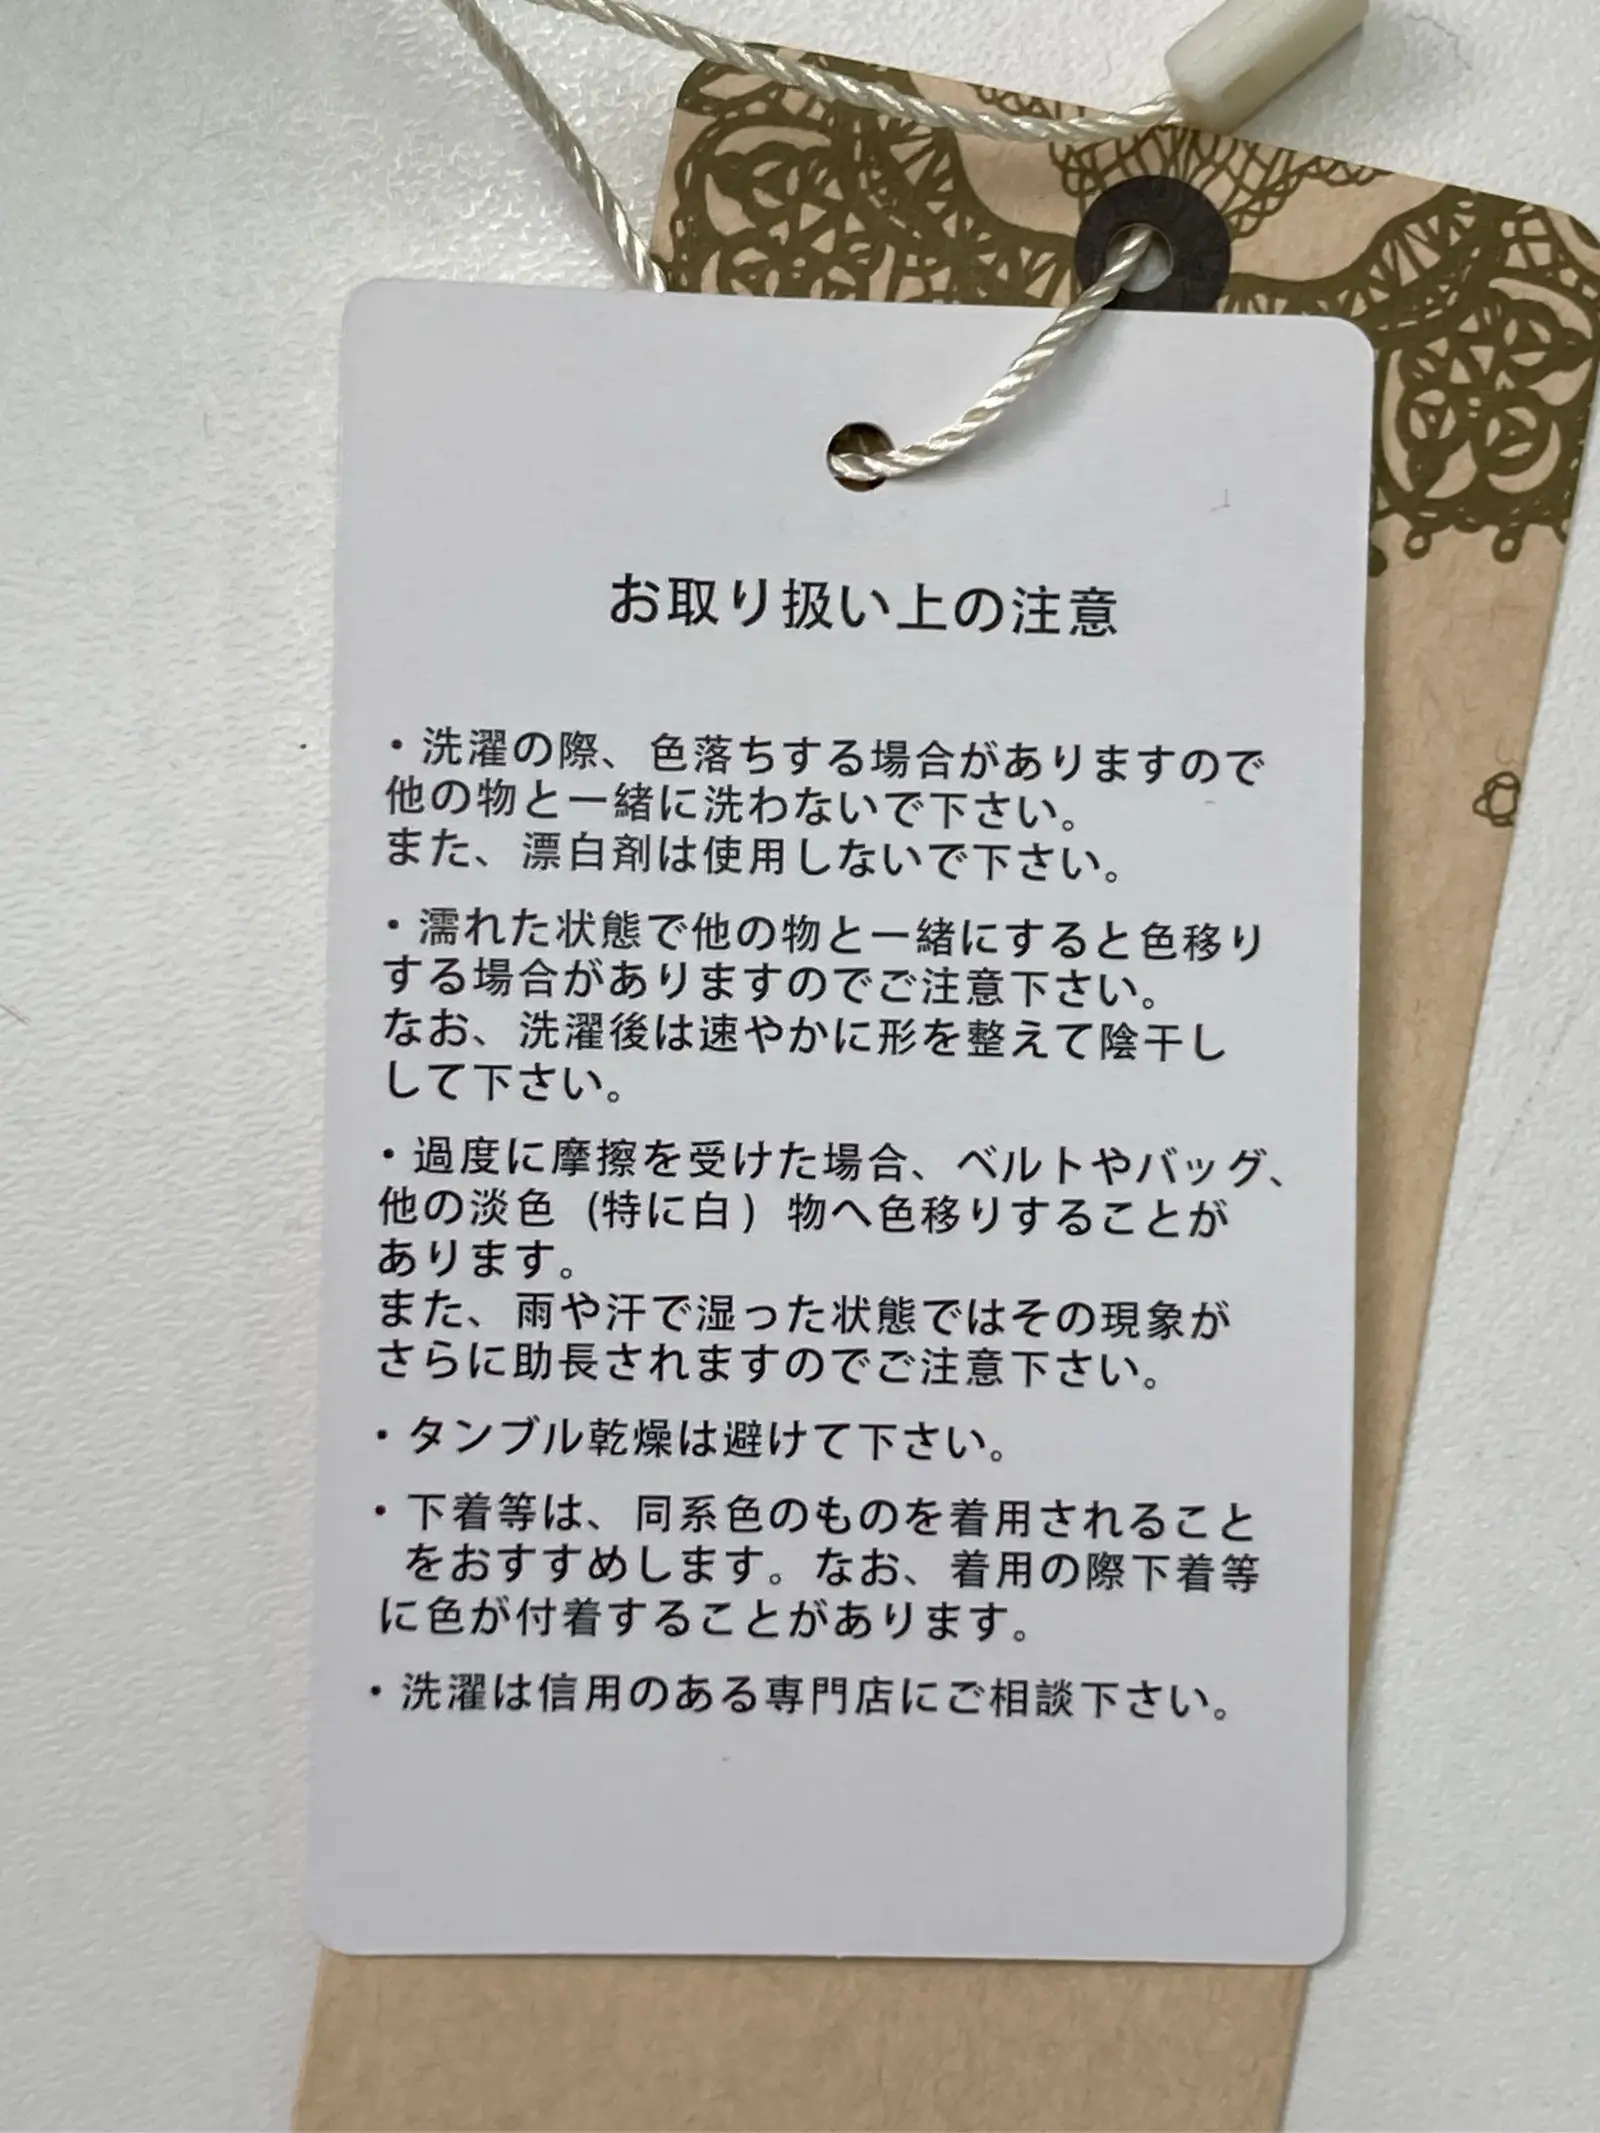 お取り扱い上の注意
・洗濯の際、色落ちする場合がありますので
他の物と一緒に洗わないで下さい。
また、漂白剤は使用しないで下さい。
・濡れた状態で他の物と一緒にすると色移り
する場合がありますのでご注意下さい。
なお、洗濯後は速やかに形を整えて陰干し
して下さい。
・過度に摩擦を受けた場合、ベルトやバッグ、
他の淡色 (特に白) 物へ色移りすることが
あります。
また、雨や汗で湿った状態ではその現象が
さらに助長されますのでご注意下さい。
・タンブル乾燥は避けて下さい。
・下着等は、同系色のものを着用されること
をおすすめします。なお、着用の際下着等
に色が付着することがあります。
・洗濯は信用のある専門店にご相談下さい。